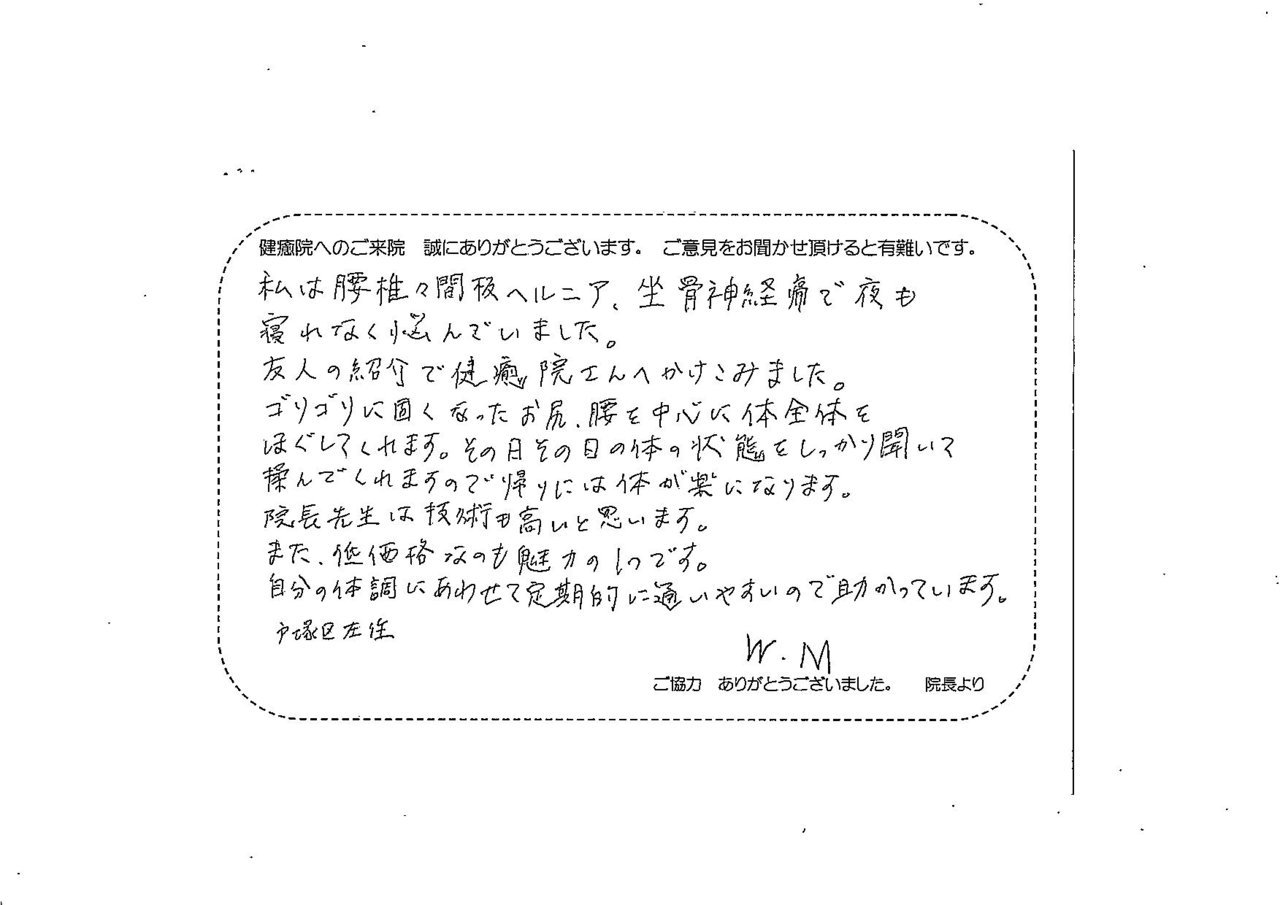 健癒院へのご来院　誠にありがとうございます。　ご意見をお聞かせ頂けると有難いです。
私は腰椎々間板ヘルニア、坐骨神経痛で夜も
寝れなく悩んでいました。
友人の紹介で健癒院さんへかけこみました。
ゴリゴリに固くなったお尻、腰を中心に体全体を
ほぐしてくれます。その日その日の体の状態をしっかり聞いて
揉んでくれますので帰りには体が楽になります。
院長先生は技術も高いと思います。
また、低価格なのも魅力の1つです。
自分の体調にあわせて定期的に通いやすいので助かっています。
戸塚区在住
W.M
ご協力　ありがとうございました。　院長より